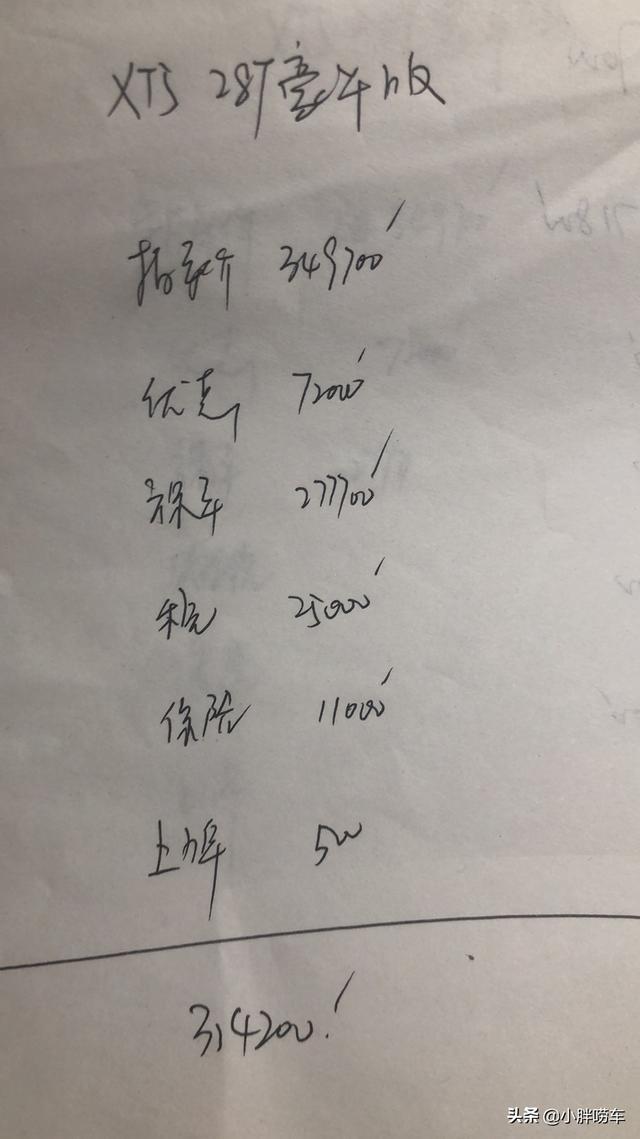 XTS 28T豪华版
指导价 349700
优惠 72000
裸车 277700
税 25000
保险 11000
上牌 500
314200
头条 @小胖唠车